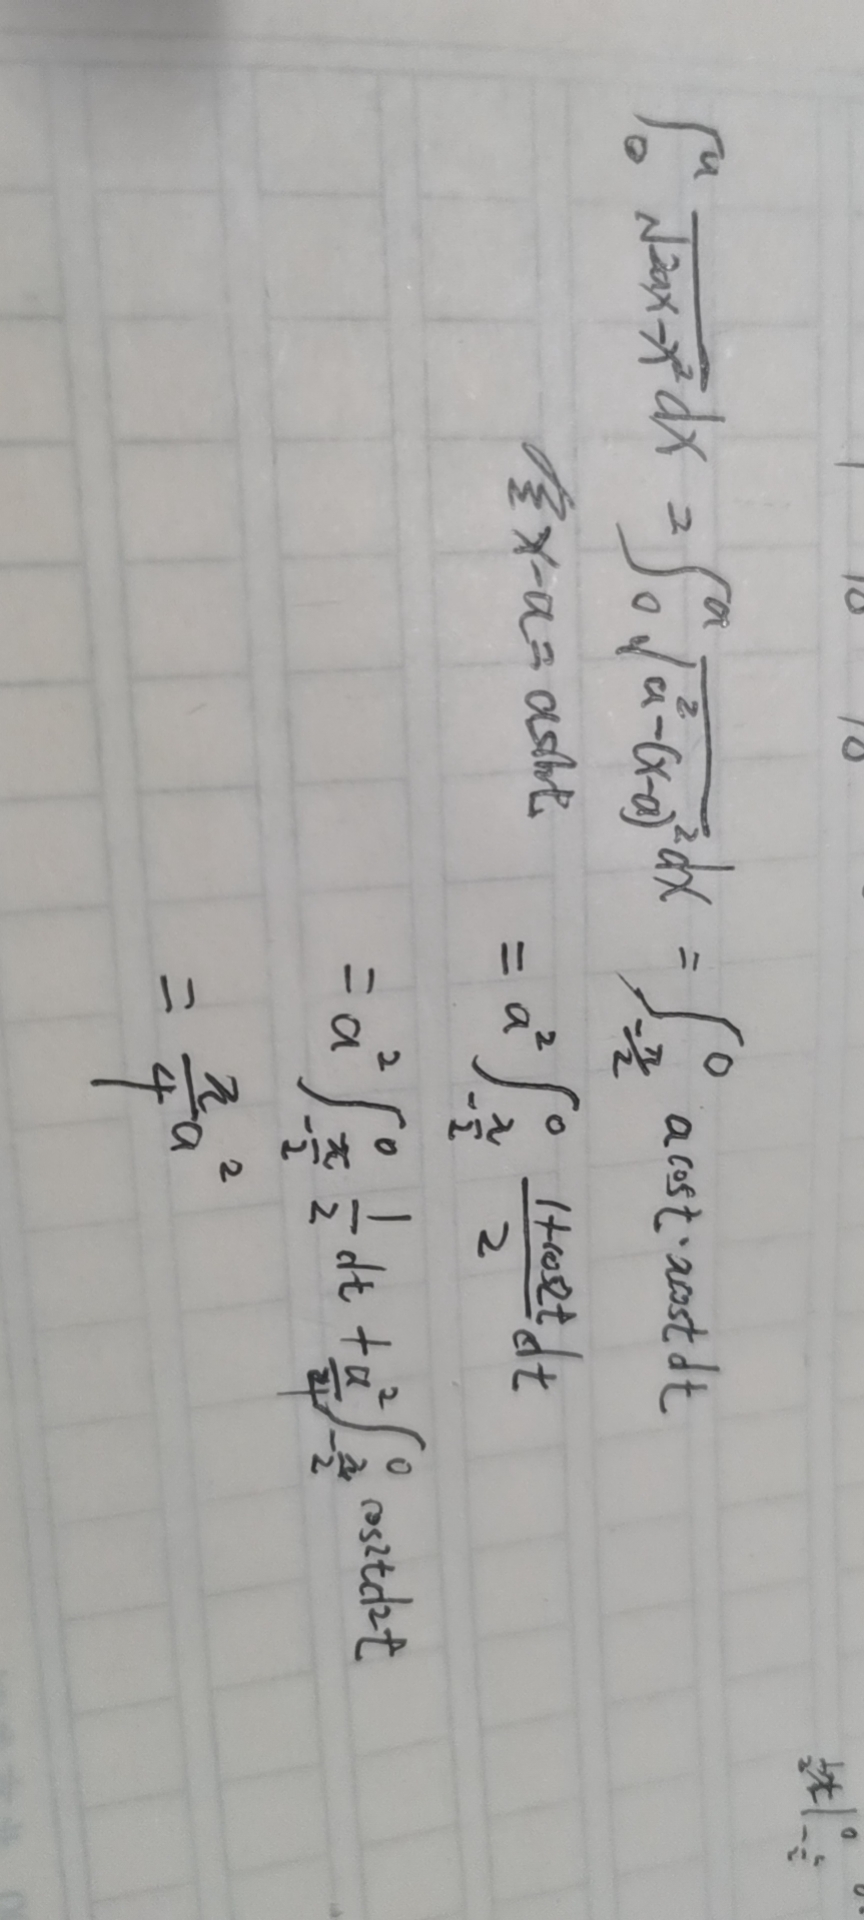 ∫₀ᵃ √(2ax-x²) dx = ∫₀ᵃ √(a²-(x-a)²) dx = ∫_{-π/2}^0 acost·acost dt
令 x-a=asint
= a² ∫_{-π/2}^0 (1+cos2t)/2 dt
= a² ∫_{-π/2}^0 1/2 dt + a²/4 ∫_{-π/2}^0 cos2td2t
= π/4 a²